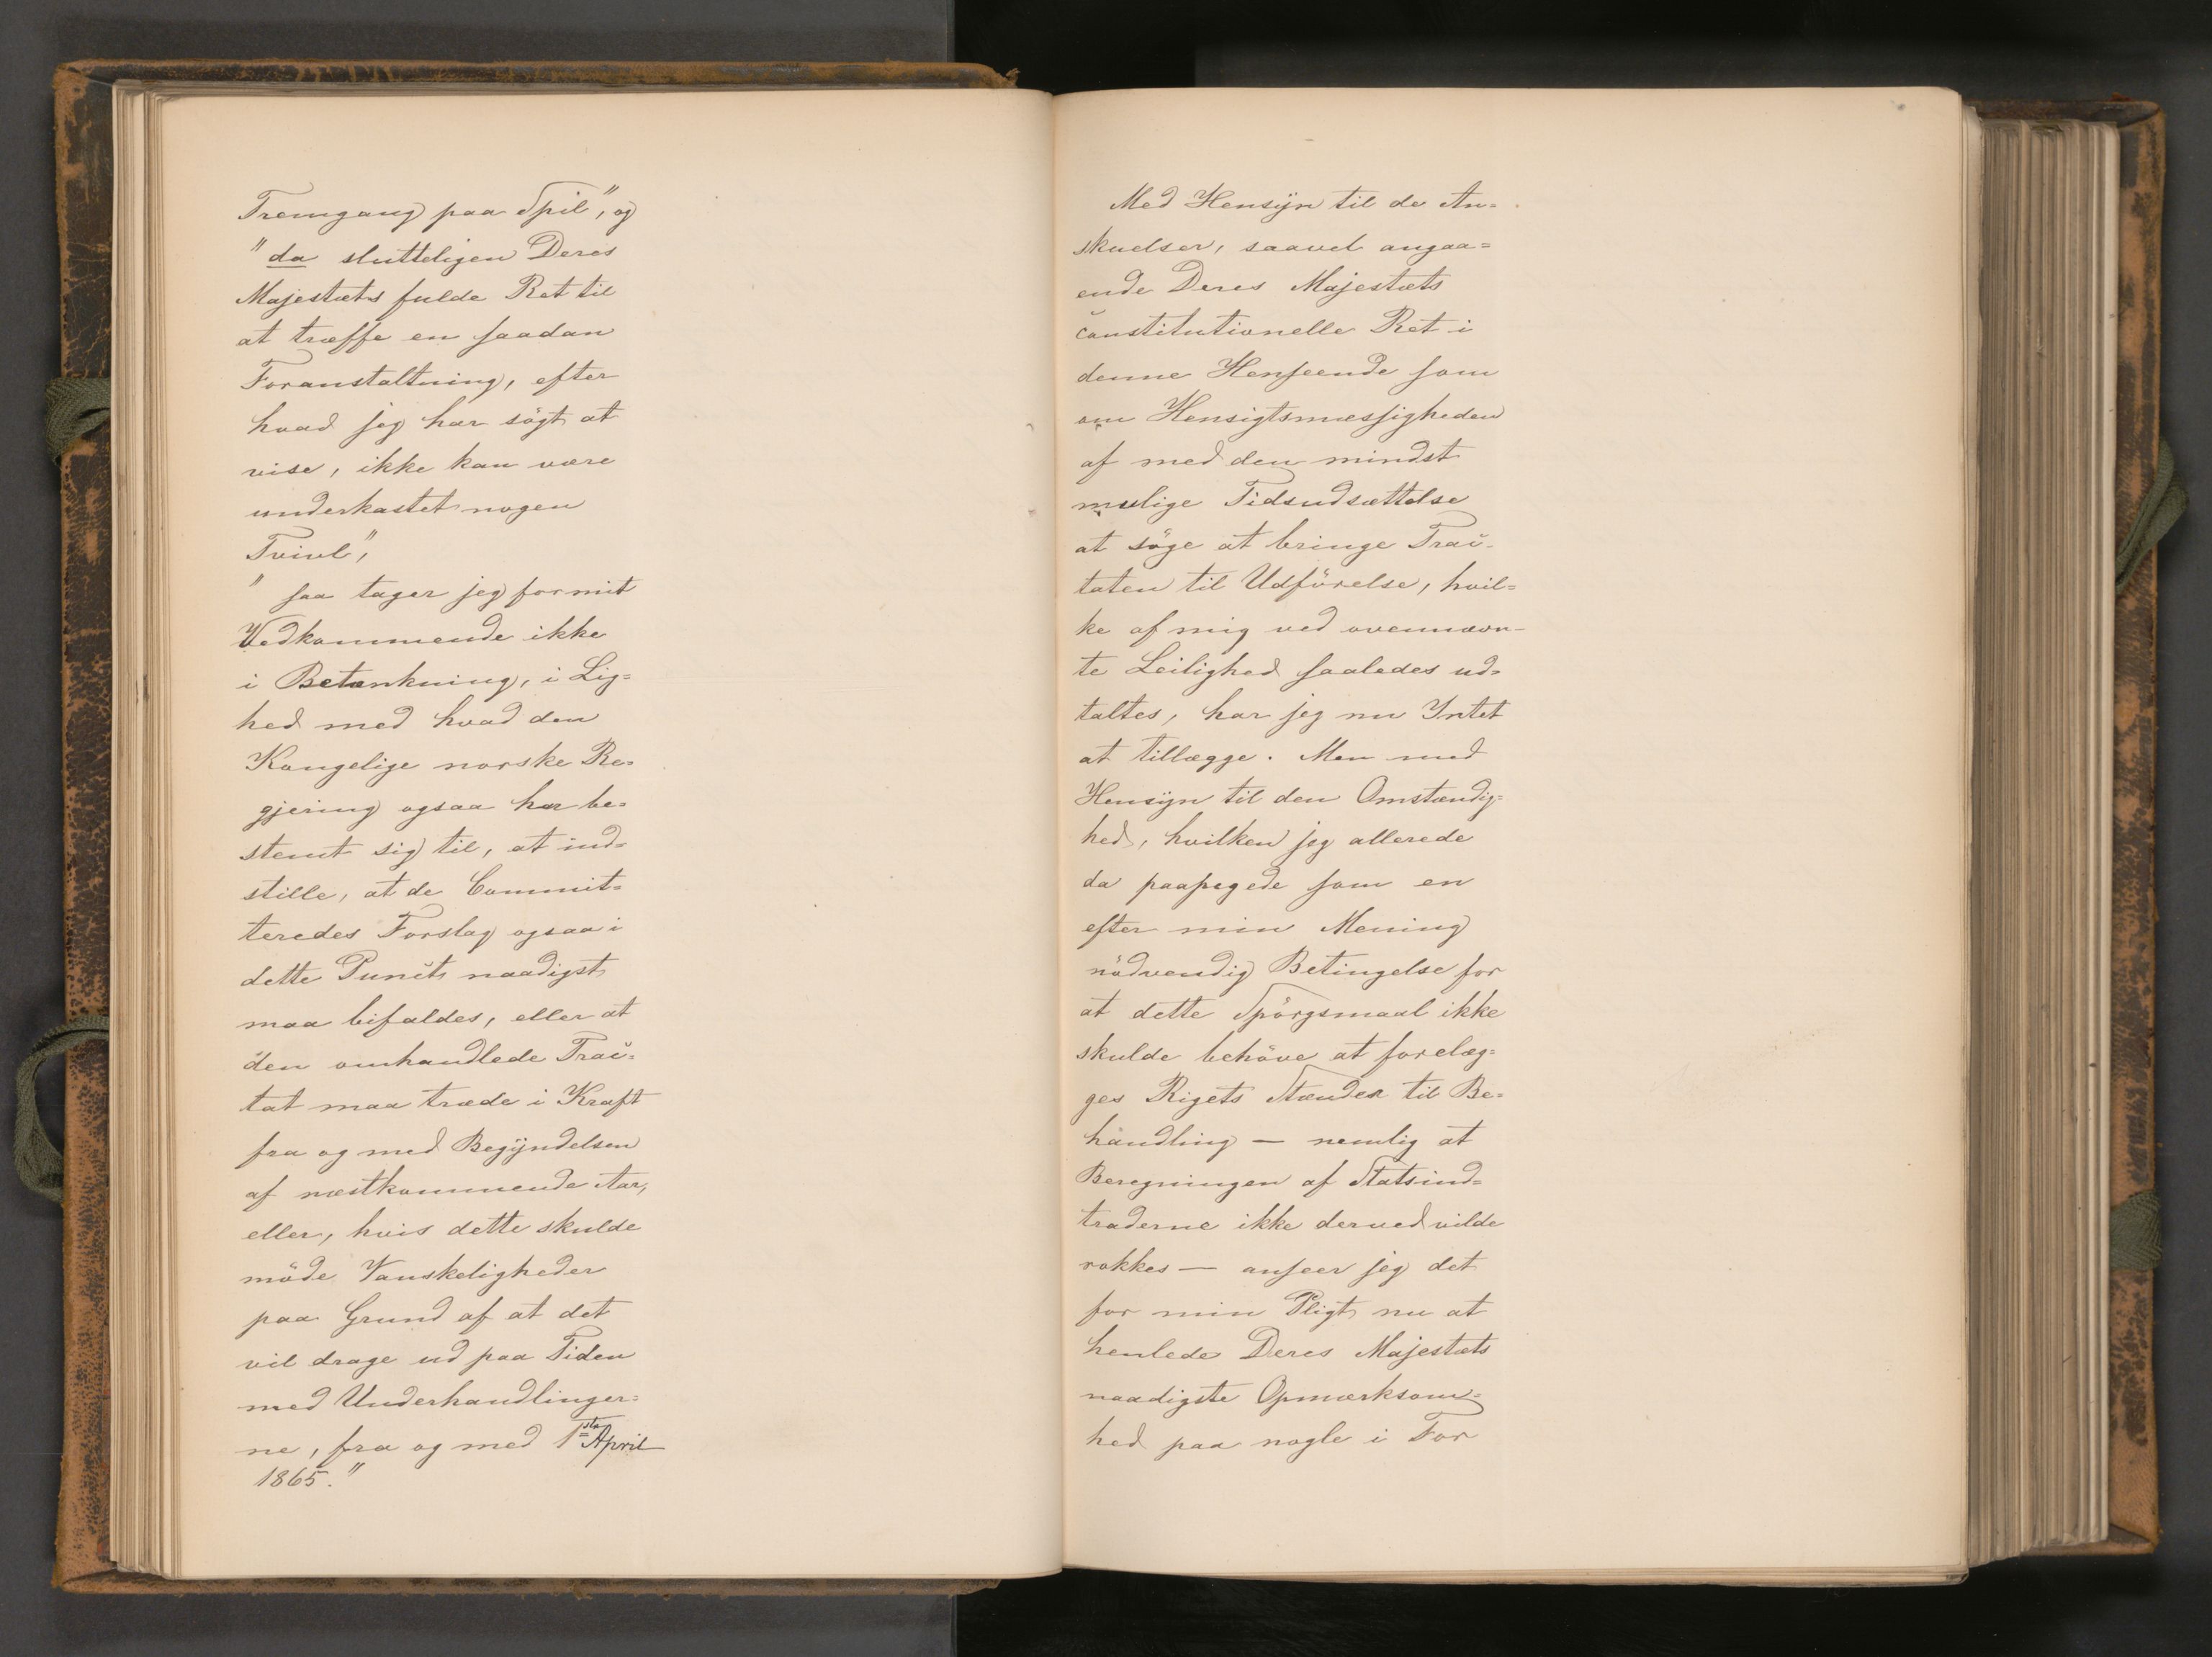 Fremgang paa Spil", og
"da slutteligen Deres
Majestæts fulde Ret til
at træffe en saadan
Foranstaltning, efter
hvad jeg har sögt at
vise, ikke kan være
underkastet nogen
Tvivl",
" saa tager jeg for mit
Vedkommende ikke
i Betænkning, i Lig=
hed med hvad den
Kongelige norske Re=
gjering ogsaa har be=
stemt sig til, at ind=
stille, at de Commit=
teredes Forslag ogsaa i
dette Punct naadigst
maa bifaldes, eller at
den omhandlede Trac=
tat maa træde i Kraft
fra og med Begyndelsen
af næstkommende Aar,
eller, hvis dette skulde
möde Vanskeligheder
paa Grund af at det
vil drage ud paa Tiden
med Underhandlinger=
ne, fra og med 1ste April
1865."
Med Hensyn til de An=
skuelser, saavel angaa=
ende Deres Majestæts
constitutionelle Ret i
denne Henseende som
om Hensigtsmæssigheden
af med den mindst
mulige Tidsudsættelse
at söge at bringe Trac-
taten til Udförelse, hvil=
ke af mig ved ovennævn-
te Leilighed saaledes ud=
taltes, har jeg nu Intet
at tillægge. Men med
Hensyn til den Omstændig=
hed, hvilken jeg allerede
da paapegede som en
efter min Mening
nödvendig Betingelse for
at dette Spörgsmaal ikke
skulde behöve at forelæg=
ges Rigets Stænder til Be=
handling — nemlig at
Beregningen af Statsind=
traderne ikke derved vilde
rokkes — anseer jeg det
for min Pligt nu at
henlede Deres Majestæts
naadigste Opmærksom=
hed paa nogle i For